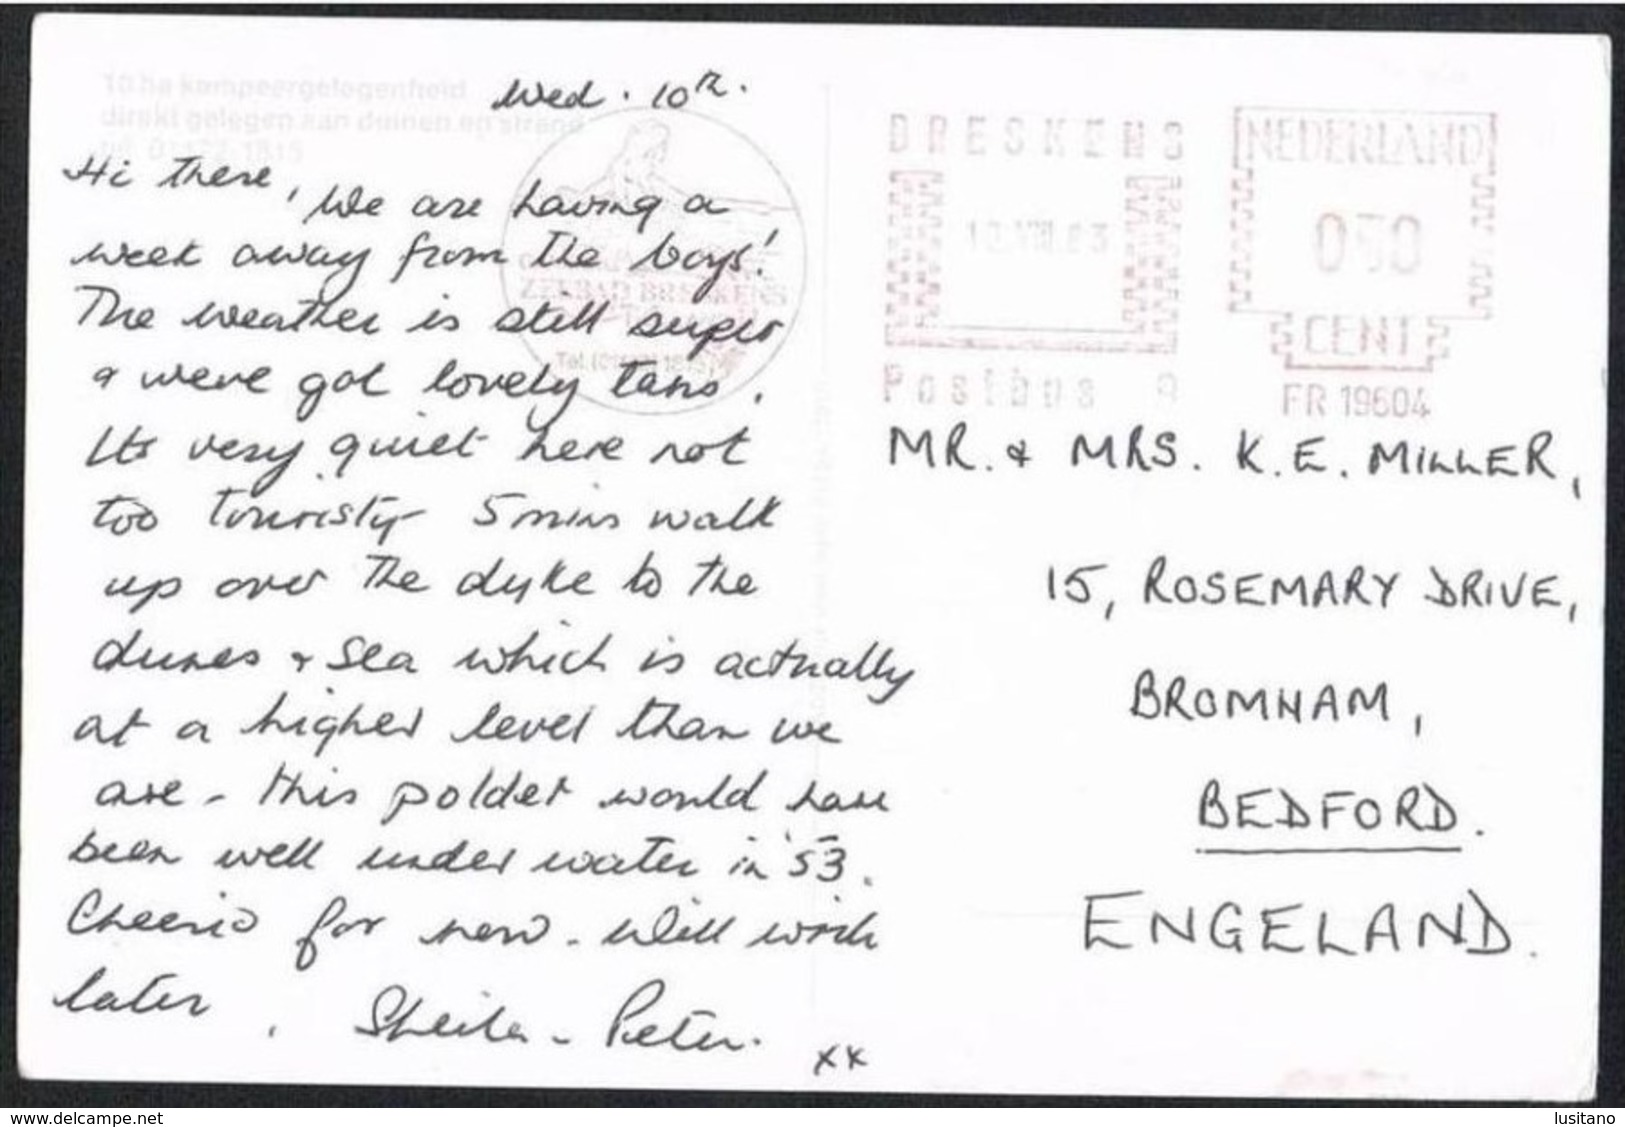 10 ha kampeergelegenheid
direkt gelegen aan duinen en strand
tel. 01172-1815
Wed. 10th.
Hi there, We are having a
week away from the boys!
The weather is still super
& weve got lovely tans.
Its very quiet here not
too touristy 5 mins walk
up over the dyke to the
dunes & sea which is actually
at a higher level than we
are - this polder would have
been well under water in '53.
Cheerio for now. Will write
later. Sheila - Pieter.
xx
ZEEBAD BRESKENS
BRESKENS
Postbus
NEDERLAND
CENT
FR 19604
MR. & MRS. K. E. MILLER,
15, ROSEMARY DRIVE,
BROMHAM,
BEDFORD.
ENGELAND.
www.delcampe.net
lusitano